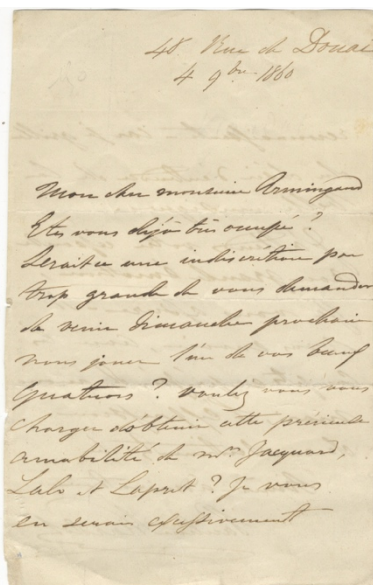 48 Rue de Douai
4 9bre 1860
Mon cher monsieur Armingaud
Etes vous déjà très occupé ?
Serait ce une indiscrétion par
trop grande de vous demander
de venir dimanche prochain
nous jouer l'un de vos beaux
quatuors ? voulez vous vous
charger d'obtenir cette précieuse
amabilité de mrs Jacquard,
Lalo et Lapret ? Je vous
en serais excessivement